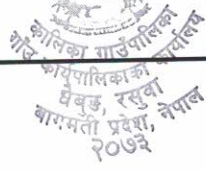 कालिका गाउँपालिका
गाँउ कार्यपालिकाको कार्यालय
धैबुङ, रसुवा
बागमती प्रदेश, नेपाल
२०७३